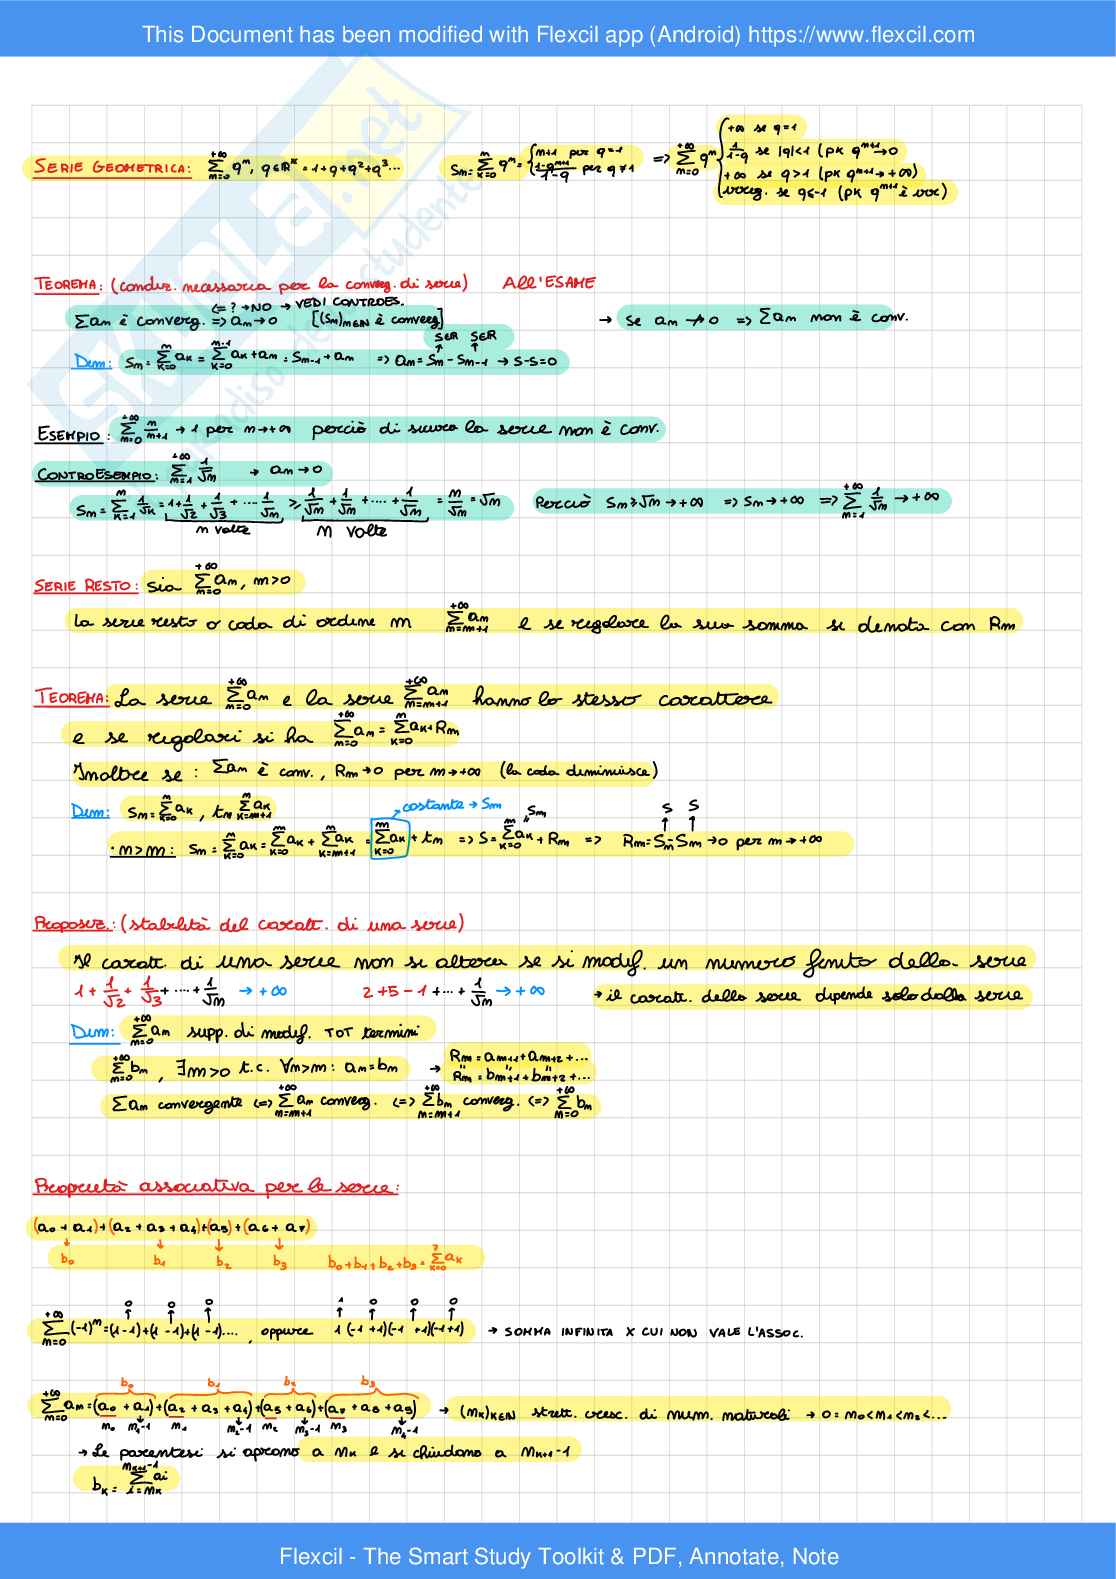 This Document has been modified with Flexcil app (Android) https://www.flexcil.com
SKUOLA.net
SERIE GEOMETRICA: Σ_{m=0}^{+∞} q^m, q∈ℝ = 1+q+q²+q³... S_m = Σ_{k=0}^{m} q^m = { m+1 per q=1 ; (1-q^{m+1})/(1-q) per q≠1 => Σ_{m=0}^{+∞} q^m { +∞ se q=1
1/(1-q) se |q|<1 (pk q^{m+1}→0
+∞ se q>1 (pk q^{m+1}→+∞)
irreg. se q≤-1 (pk q^{m+1} è irr)
TEOREMA: (condiz. necessaria per la converg. di serie) All'ESAME
<=? → NO → VEDI CONTROES.
Σam è converg. => am→0 [(Sm)m∈N è converg] → se am ↛ 0 => Σam non è conv.
S∈R S∈R
Dim: S_m = Σ_{k=0}^{m} a_k = Σ_{k=0}^{m-1} a_k + a_m = S_{m-1} + a_m => a_m = S_m - S_{m-1} → S-S=0
ESEMPIO: Σ_{m=0}^{+∞} m/(m+1) → 1 per m→+∞ perciò di sicuro la serie non è conv.
CONTROESEMPIO: Σ_{m=1}^{+∞} 1/√m → am→0
S_m = Σ_{k=1}^{m} 1/√k = 1+1/√2+1/√3+...1/√m ≥ 1/√m+1/√m+....+1/√m = m/√m = √m Perciò Sm≥√m→+∞ => Sm→+∞ => Σ_{m=1}^{+∞} 1/√m → +∞
n volte n volte
SERIE RESTO: Sia Σ_{m=0}^{+∞} am, m>0
la serie resto o coda di ordine m Σ_{m=m+1}^{+∞} am e se regolare la sua somma si denota con Rm
TEOREMA: La serie Σ_{m=0}^{+∞} am e la serie Σ_{m=m+1}^{+∞} am hanno lo stesso carattere
e se regolari si ha Σ_{m=0}^{+∞} am = Σ_{k=0}^{m} ak+Rm
Inoltre se: Σam è conv., Rm→0 per m→+∞ (la coda diminuisce)
Dim: S_m = Σ_{k=0}^{m} ak, tm Σ_{k=m+1}^{m} ak costante → Sm Sm S S
· n>m: Sm = Σ_{k=0}^{m} ak = Σ_{k=0}^{m} ak + Σ_{k=m+1}^{m} ak = Σ_{k=0}^{m} ak + tm => S = Σ_{k=0}^{m} ak + Rm => Rm = Sm - Sm → 0 per m→+∞
Proposiz.: (stabilità del caratt. di una serie)
Il caratt. di una serie non si altera se si modif. un numero finito della serie
1 + 1/√2 + 1/√3 + ... + 1/√m → +∞ 2+5-1+...+ 1/√m → +∞ → il caratt. della serie dipende solo dalla serie
Dim: Σ_{m=0}^{+∞} am supp. di modif. TOT termini
Σ_{m=0}^{+∞} bm, ∃m>0 t.c. ∀m>m: am=bm → Rm = a_{m+1}+a_{m+2}+...
Rm = b_{m+1}+b_{m+2}+...
Σam convergente <=> Σ_{m=m+1}^{+∞} am converg. <=> Σ_{m=m+1}^{+∞} bm converg. <=> Σ_{m=0}^{+∞} bm
Proprietà associativa per le serie:
(a0+a1)+(a2+a3+a4)+(a5)+(a6+a7)
b0 b1 b2 b3 b0+b1+b2+b3 = Σ_{k=0}^{7} ak
0 0 0 1 0 0 0
Σ_{m=0}^{+∞} (-1)^m = (1-1)+(1-1)+(1-1)...., oppure 1 (-1+1)(-1+1)(-1+1) → SOMMA INFINITA X CUI NON VALE L'ASSOC.
b0 b1 b2 b3
Σ_{m=0}^{+∞} am = (a0+a1)+(a2+a3+a4)+(a5+a6)+(a7+a8+a9) → (mk)k∈N strett. cresc. di num. naturali → 0=m0<m1<m2<...
m0 m1-1 m1 m2-1 m2 m3-1 m3 m4-1
→ Le parentesi si aprono a mk e si chiudono a m_{k+1}-1
bk = Σ_{i=mk}^{m_{k+1}-1} ai
Flexcil - The Smart Study Toolkit & PDF, Annotate, Note